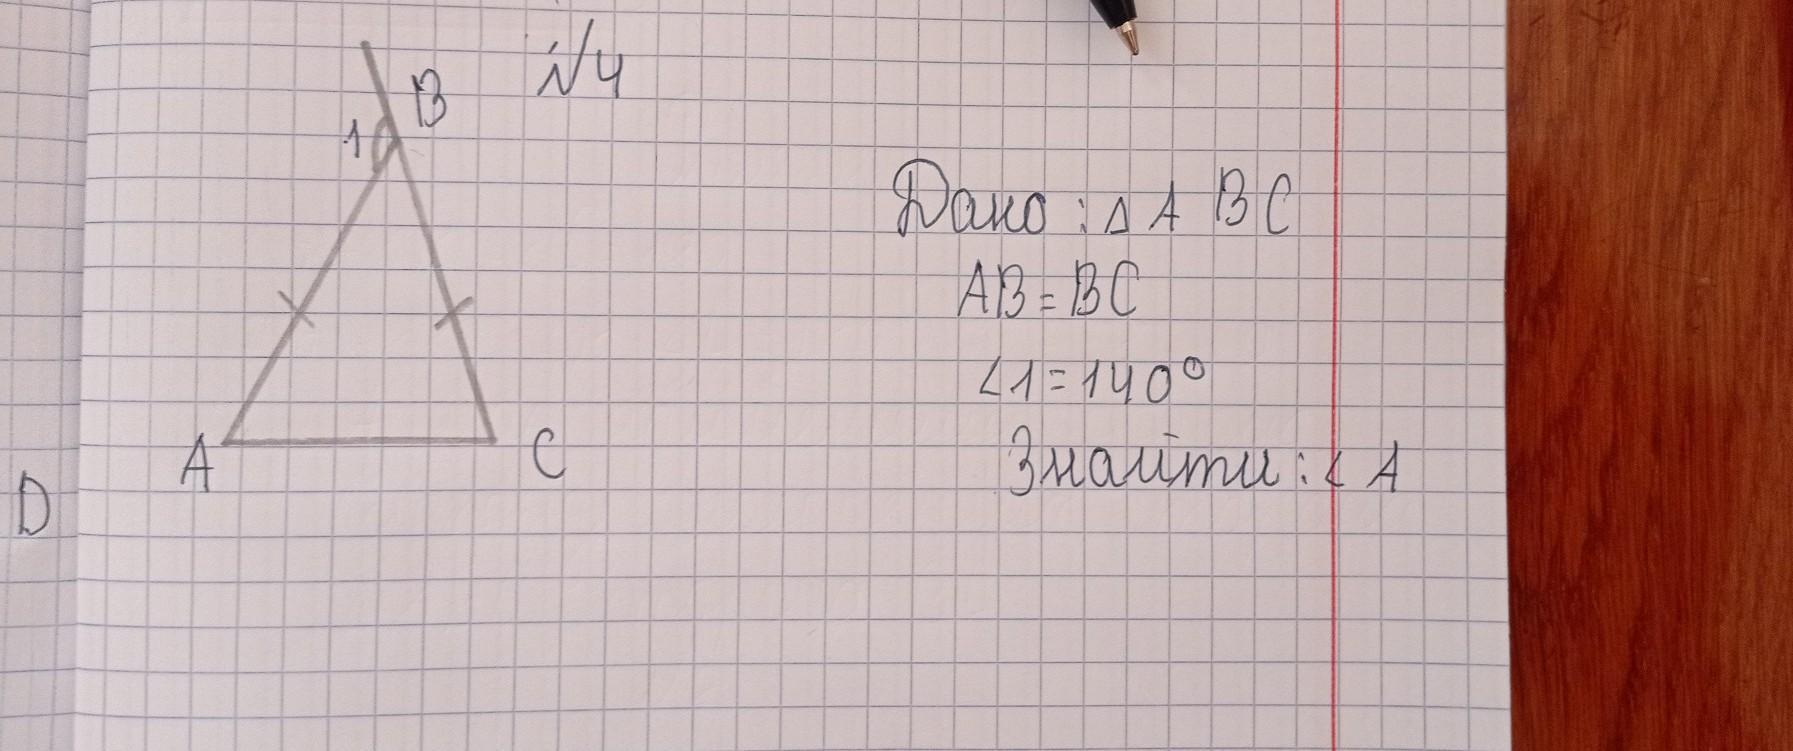 №4
B
1
A
C
D
Дано : Δ A B C
AB = BC
∠1 = 140°
Знайти : ∠ A